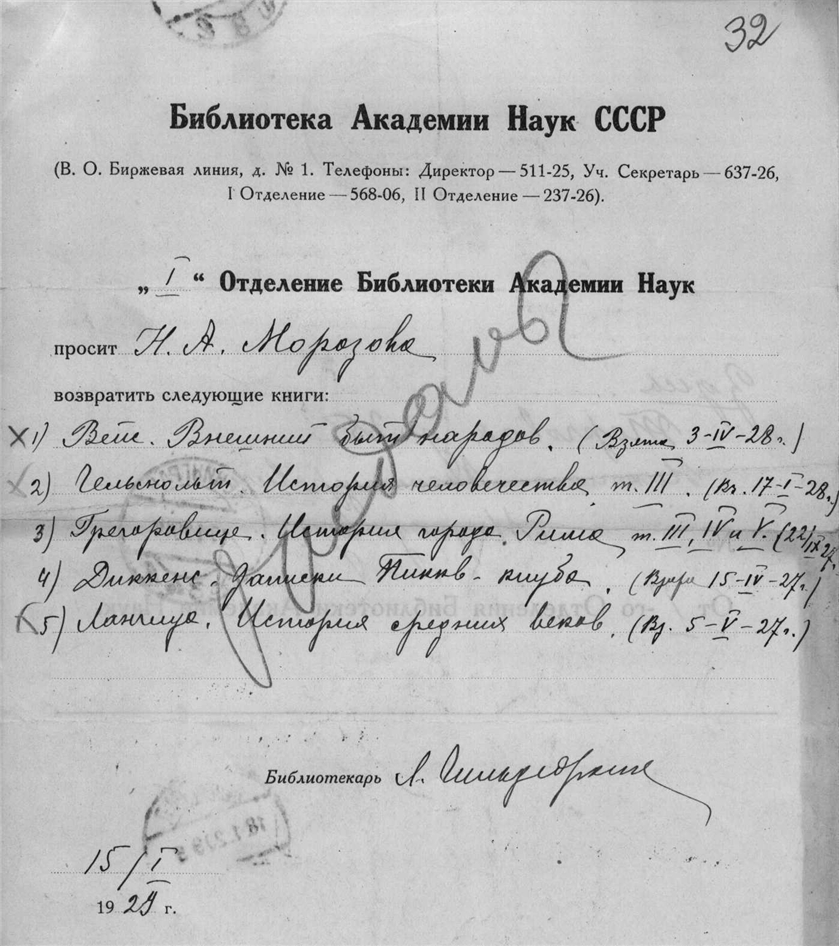 32
Библиотека Академии Наук СССР
(В. О. Биржевая линия, д. № 1. Телефоны: Директор — 511-25, Уч. Секретарь — 637-26,
I Отделение — 568-06, II Отделение — 237-26).
„ I “ Отделение Библиотеки Академии Наук
просит Н. А. Морозова
возвратить следующие книги:
1) Вейс. Внешний быт народов. (Взята 3-IV-28 г.)
2) Гельмольт. История человечества, т. III. (Вз. 17-I-28 г.)
3) Грегоровиус. История города Рима, т. III, IV и V. (22/IX 27 г.)
4) Диккенс. Записки Пикв. клуба. (Взята 15-IV-27 г.)
5) Ланчица. История средних веков. (Вз. 5-V-27 г.)
Библиотекарь Л.
15/I
1929 г.